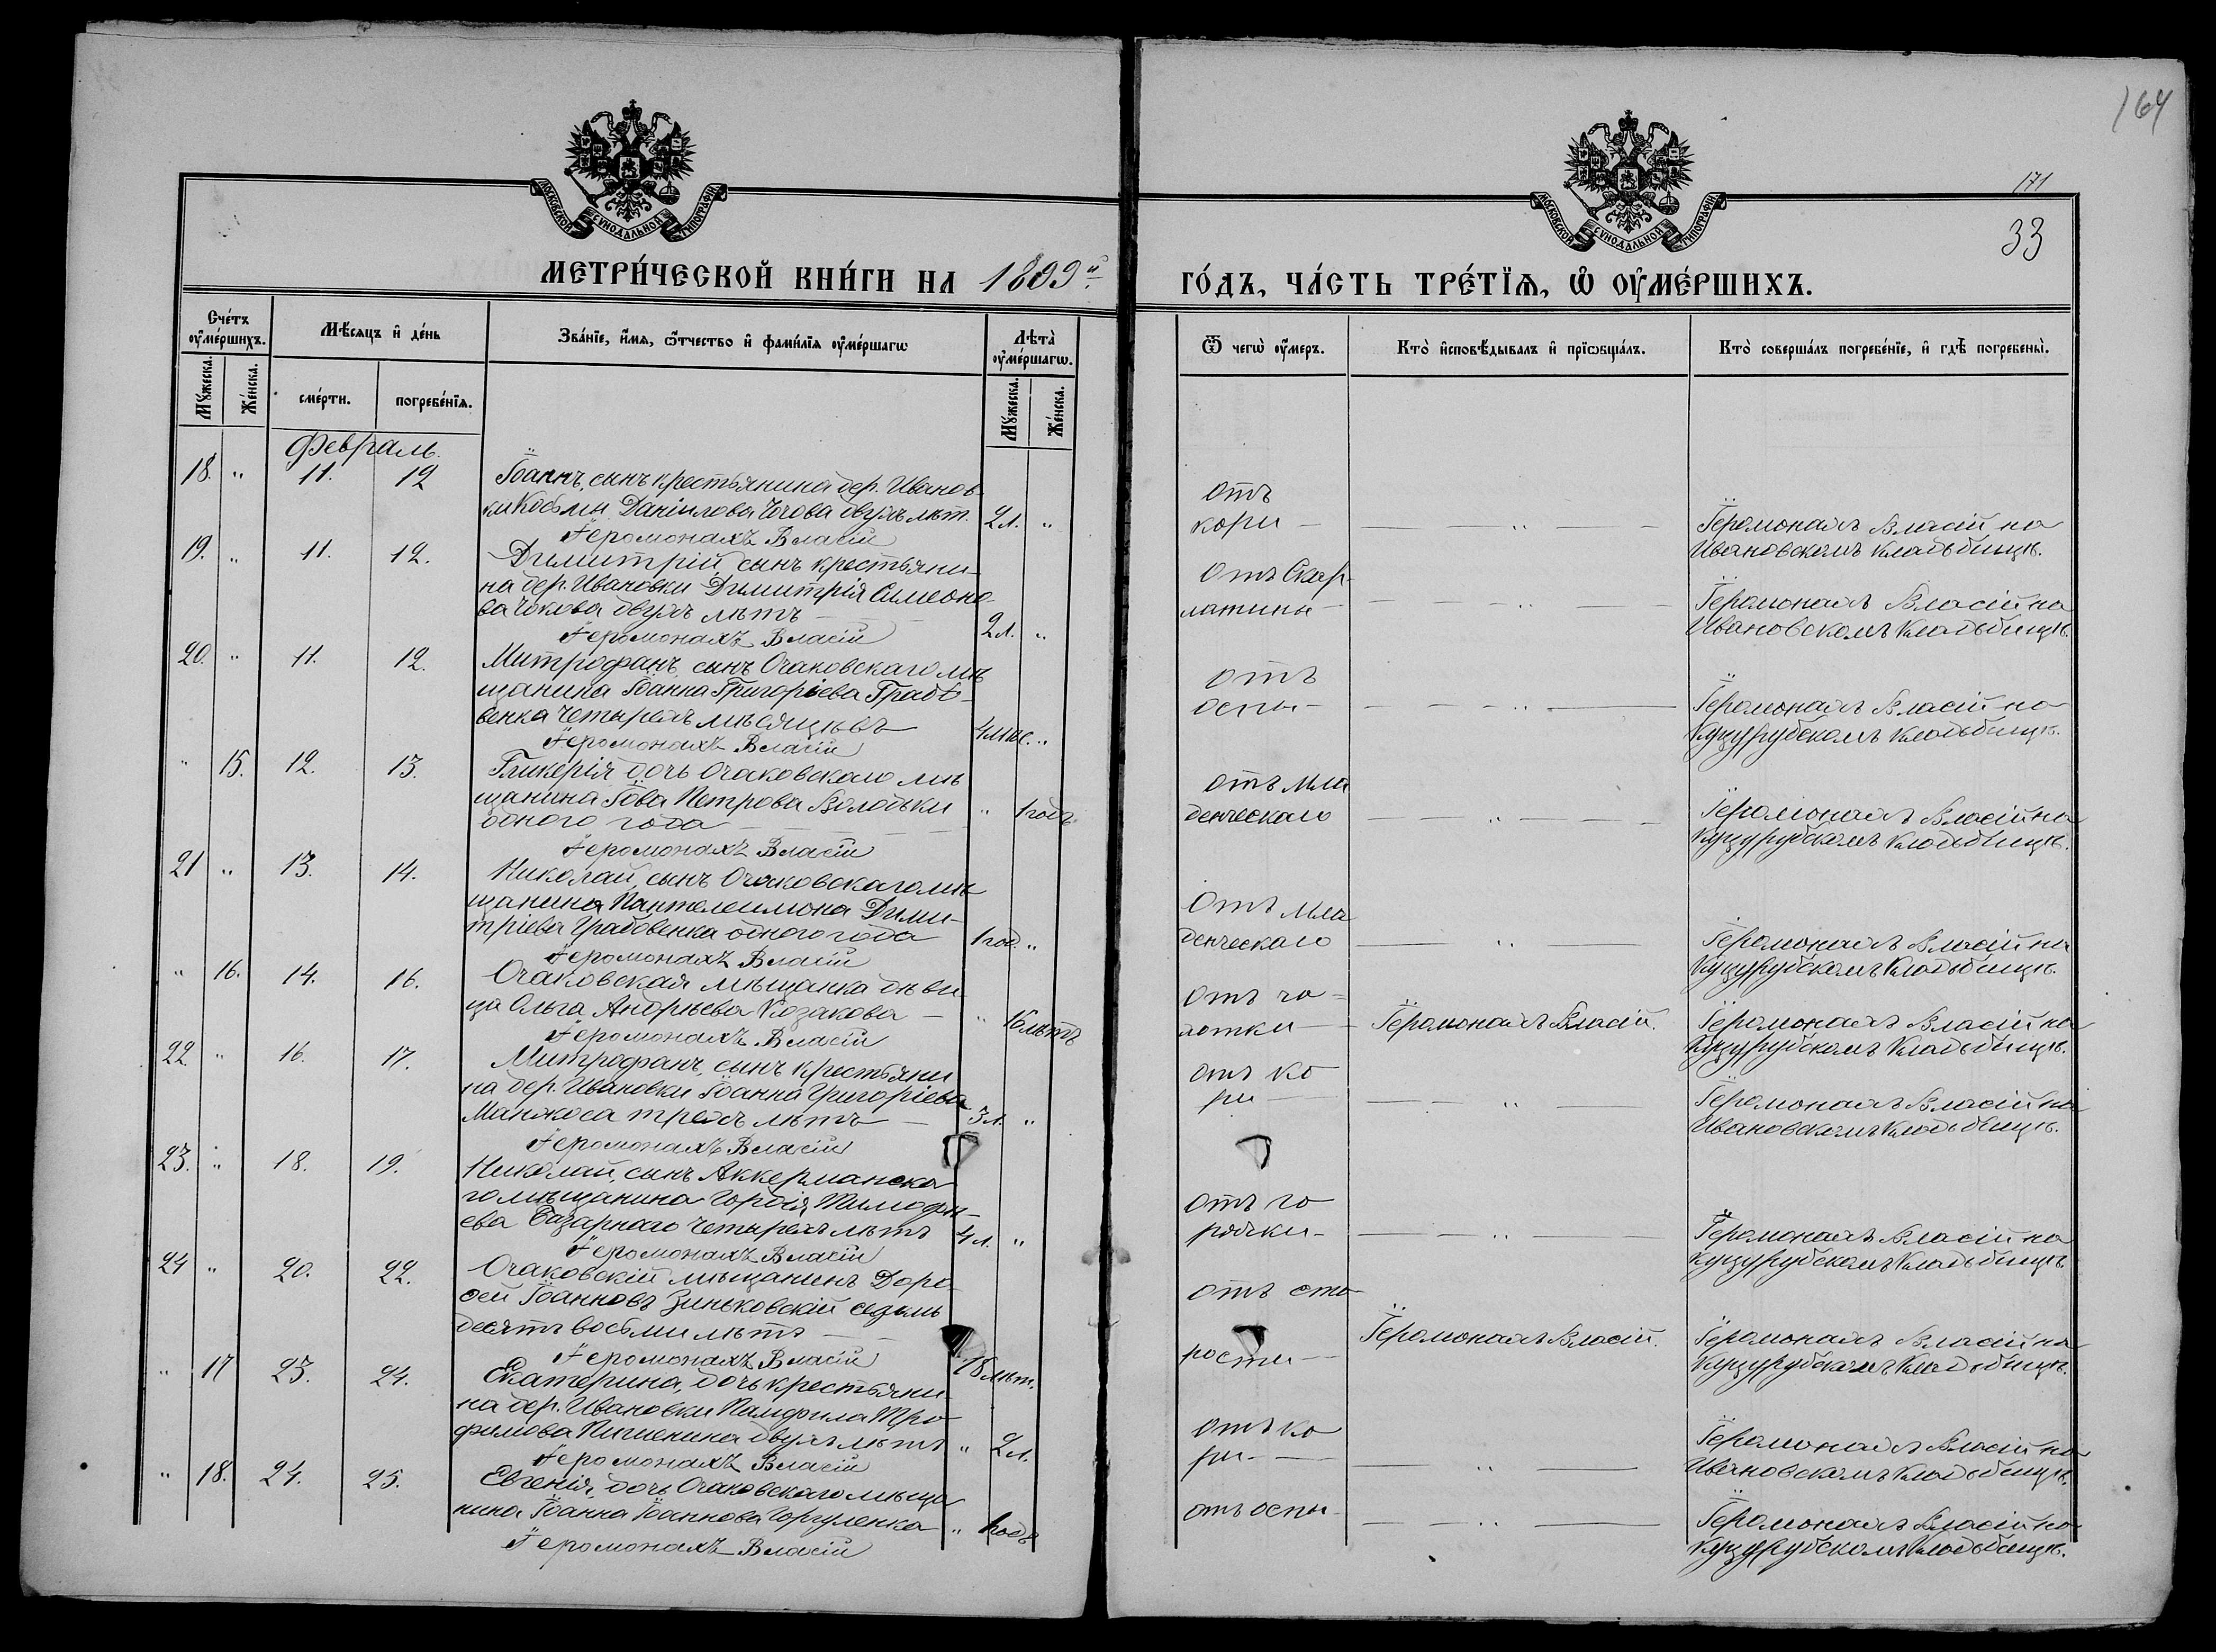 164
171
33
МОСКОВСКОЙ СѴНОДАЛЬНОЙ ТИПОГРАФІИ
МОСКОВСКОЙ СѴНОДАЛЬНОЙ ТИПОГРАФІИ
МЕТРИ́ЧЕСКОЙ КНИ́ГИ НА 1899й ГО́ДЪ, ЧА́СТЬ ТРЕ́ТЇѦ, Ѡ҆ ОУ҆МЕ́РШИХЪ.
Сче́тъ оу҆ме́ршихъ.
Мꙋ́жеска.
Же́нска.
Мѣ́сяцъ и҆ де́нь
сме́рти.
погребе́нїѧ.
Зва́нїе, и҆́мѧ, ѻ҆́тчество и҆ фами́лїѧ оу҆ме́ршагѡ
Лѣта̀ оу҆ме́ршагѡ.
Мꙋ́жеска.
Же́нска.
Ѿ чегѡ̀ оу҆́меръ.
Кто̀ и҆сповѣ́дывалъ и҆ прїѡбща́лъ.
Кто̀ соверша́лъ погребе́нїе, и҆ гдѣ̀ погребены̀.
Февраль.
18. " 11. 12
Іоаннъ, сынъ крестьянина дер. Иванов-
ки Косьмы Даніилова Чогова двухъ лѣт. 2 л. "
Іеромонахъ Власій
отъ
кори
Іеромонахъ Власій на
Ивановскомъ кладьбищѣ.
19. " 11. 12.
Димитрій, сынъ крестьяни-
на дер. Ивановки Димитрія Симеоно-
ва Чокова двухъ лѣтъ 2 л. "
Іеромонахъ Власій
отъ Скар-
латины
Іеромонахъ Власій на
Ивановскомъ Кладьбищѣ.
20. " 11. 12.
Митрофанъ, сынъ Очаковскаго мѣ
щанина Іоанна Григоріева Грабо-
венка четырехъ мѣсяцевъ 4 мѣс. "
Іеромонахъ Власій
отъ
оспы
Іеромонахъ Власій на
Куцурубскомъ кладьбищѣ.
" 15. 12. 13.
Гликерія дочь Очаковскаго мѣ
щанина Іова Петрова Володьки " 1 годъ
одного года
Іеромонахъ Власій
отъ мла
денческаго
Іеромонахъ Власій на
Куцурубскомъ кладьбищѣ.
21 " 13. 14.
Николай, сынъ Очаковскаго мѣ
щанина Пантелеимона Дими-
тріева Грабовенка одного года 1 год. "
Іеромонахъ Власій
Отъ мла
денческаго
Іеромонахъ Власій на
Куцурубскомъ Кладьбищѣ.
" 16. 14. 16.
Очаковская мѣщанка дѣви
ца Ольга Андрьева Козакова " 16 лѣтъ
Іеромонахъ Власій
отъ ча=
хотки
Іеромонахъ Власій.
Іеромонахъ Власій на
Куцурубскомъ Кладьбищѣ.
22. " 16. 17.
Митрофанъ, сынъ крестьяни
на дер. Ивановки Іоанна Григоріева
Манжоса трехъ лѣтъ 3 л. "
Іеромонахъ Власій
отъ ко
ри
Іеромонахъ Власій на
Ивановскомъ Кладьбищѣ.
23. " 18. 19.
Николай, сынъ Аккерманска
го мѣщанина Гордія Тимофе-
ева Базарнаго четырехъ лѣтъ 4 л. "
Іеромонахъ Власій
отъ го
рячки
Іеромонахъ Власій на
Куцурубскомъ Кладьбищѣ
24 " 20. 22.
Очаковскій мѣщанинъ Доро
фей Іоанновъ Зиньковскій седьмь
десятъ восьми лѣтъ 78 лѣт.
Іеромонахъ Власій
отъ ста-
рости
Іеромонахъ Власій.
Іеромонахъ Власій на
Куцурубскомъ Кладьбищѣ.
" 17 23. 24.
Екатерина, дочь крестьяни-
на дер. Ивановки Памфила Тро-
фимова двухъ лѣтъ " 2 л.
Іеромонахъ Власій
отъ ко
ри
Іеромонахъ Власій на
Ивановскомъ Кладьбищѣ.
" 18. 24. 25.
Евгенія, дочь Очаковскаго мѣща
нина Іоанна Іоаннова Горгуленка " 1 годъ
Іеромонахъ Власій
отъ оспы
Іеромонахъ Власій на
Куцурубскомъ Кладьбищѣ.